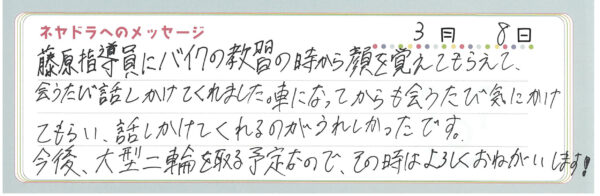 ネヤドラへのメッセージ 3月 8日
藤原指導員にバイクの教習の時から顔を覚えてもらえて、
会うたび話しかけてくれました。車になってからも会うたび気にかけ
てもらい、話しかけてくれるのがうれしかったです。
今後、大型二輪を取る予定なので、その時はよろしくおねがいします!